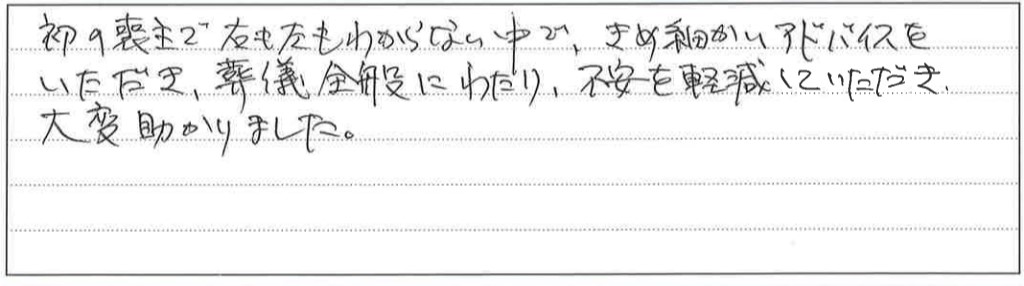 初の喪主で右も左もわからない中で、きめ細かいアドバイスを
いただき、葬儀全般にわたり、不安を軽減していただき、
大変助かりました。